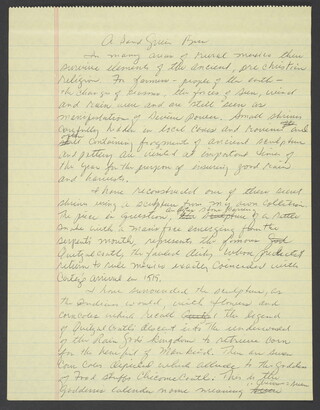 A Hand Given Been
In many areas of rural mexico there
survive elements of the ancient, pre christian
religion. For farmers - people of the earth -
the change of seasons, the forces of sun, wind
and rain were and are still seen as
manifestation of Devine power. Small shrines
carefully hidden in local caves and
containing fragments of ancient sculpture
and pottery are visited at important times of
the year for the purpose of ensuring good rain
and harvests.
I have reconstructed one of these secret
shrines using a sculpture from my own collection
The piece in question, of a rattle
snake with a man's face emerging from the
serpents mouth, represents the famous God
Quetzalcoatl, the feathered deity "whose predicted
return to rule mexico exactly coincided with
Cortez's arrival in 1519.
I have surrounded the sculpture, as
the Indians would, with flowers and
corncobs which recall the legend
of Quetzalcoatl's descent into the underworld
of the Rain Gods kingdom to retrieve corn
for the benefit of Mankind. There are seven
Corn Cobs depicted which allude to the Goddess
of Food Stuffs ChicomeCoatl. This is the
Goddesses calendar name meaning